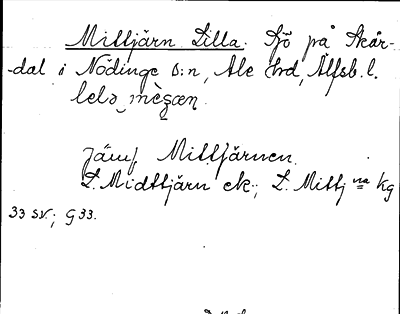 Mittjärn Lilla. Sjö på Skår-
dal i Nödinge s:n, Ale hrd, Älfsb. l.
Jämf. Mittjärnen.
L. Midttjärn ek.; L. Mittj na Kg
33 SV.; G 33.